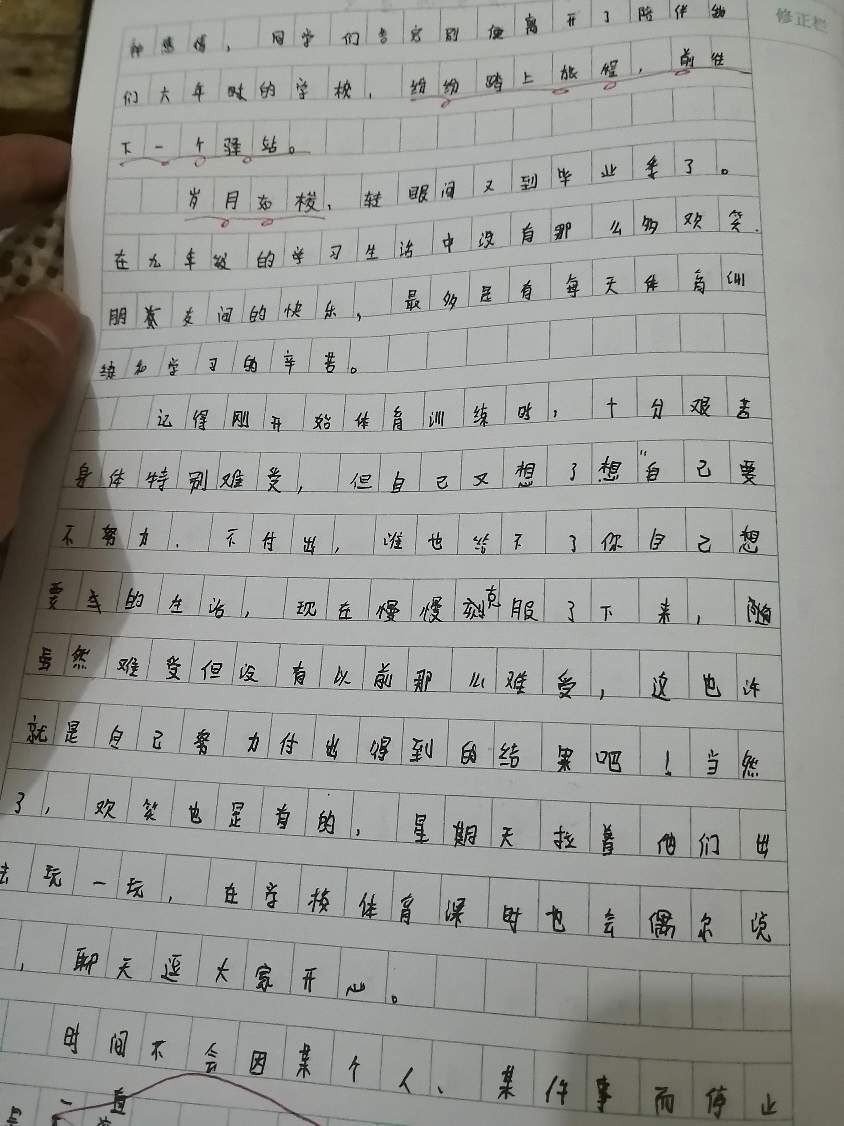 修正栏
种感情，同学们告完别便离开了陪伴她
们六年时的学校，纷纷踏上旅程，前往
下一个驿站。
岁月如梭，转眼间又到毕业季了。
在九年级的学习生活中没有那么多欢笑.
朋友间的快乐，最多是有每天体育训
练和学习的辛苦。
记得刚开始体育训练时，十分艰苦
身体特别难受，但自己又想了想"自己要
不努力.不付出，谁也给不了你自己想
要的生活，现在慢慢克服了下来，
虽然难受但没有以前那么难受，这也许
就是自己努力付出得到的结果吧！当然
了，欢笑也是有的，星期天拉着他们出
去玩一玩，在学校体育课时也会偶尔说
，聊天逗大家开心。
时间不会因某个人、某件事而停止
一直